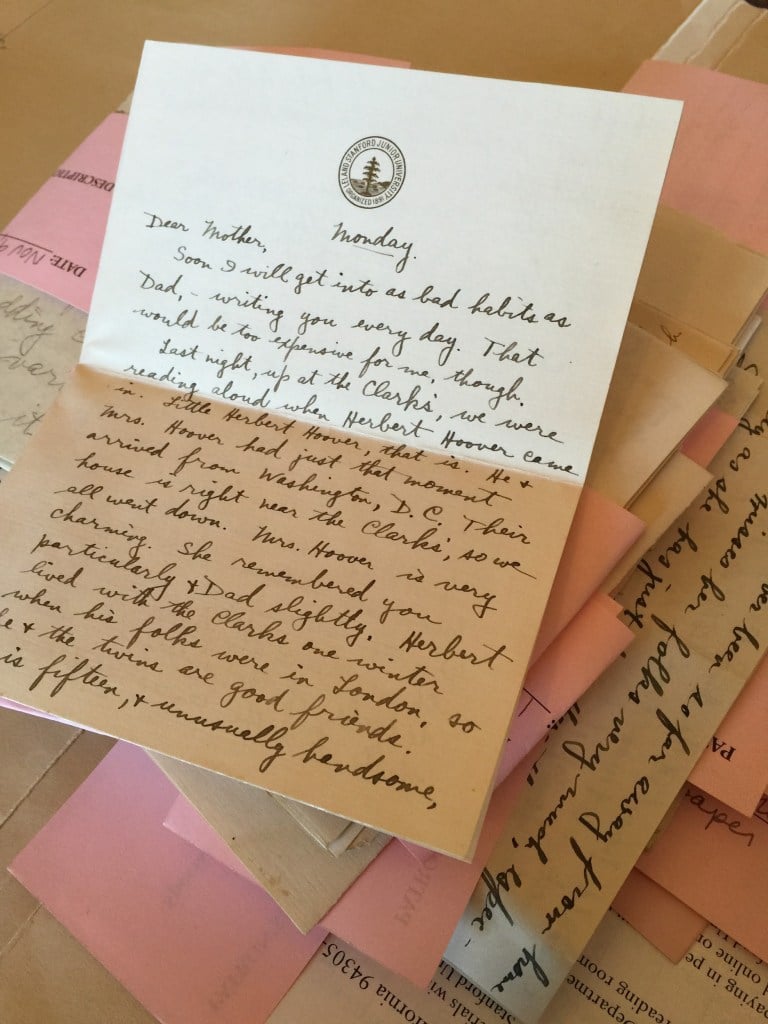 LELAND STANFORD JUNIOR UNIVERSITY
ORGANIZED 1891
Monday.
Dear Mother,
Soon I will get into as bad habits as
Dad, - writing you every day. That
would be too expensive for me, though.
Last night, up at the Clarks', we were
reading aloud when Herbert Hoover came
in. Little Herbert Hoover, that is. He &
Mrs. Hoover had just that moment
arrived from Washington, D.C. Their
house is right near the Clarks', so we
all went down. Mrs. Hoover is very
charming. She remembered you
particularly & Dad slightly. Herbert
lived with the Clarks one winter
when his folks were in London, so
& the twins are good friends.
is fifteen, & unusually handsome,
DATE: Nov
been so far away from home
misses her folks very much, espec-
as she has just
ifornia 94305
Stanford
paying in pe
online or
reading room